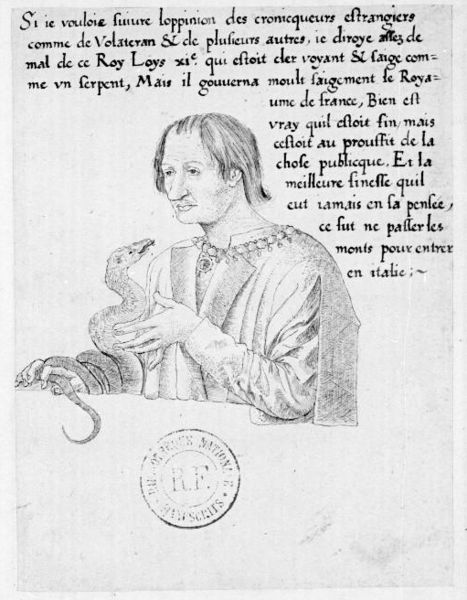 Si ie vouloie suiure loppinion des cronicqueurs estrangiers
comme de Volateran & de plusieurs autres, ie diroye assez de
mal de ce Roy Loys xi.e qui estoit cler voyant & saige com=
me vn serpent, Mais il gouuerna moult saigement le Roya=
ume de france, Bien est
vray quil estoit fin, mais
cestoit au prouffit de la
chose publicque, Et la
meilleure finesse quil
eut iamais en sa pensee,
ce fut ne passer les
monts pour entrer
en italie; ~
BIBLIOTHEQUE NATIONALE
MANUSCRITS
R.F.